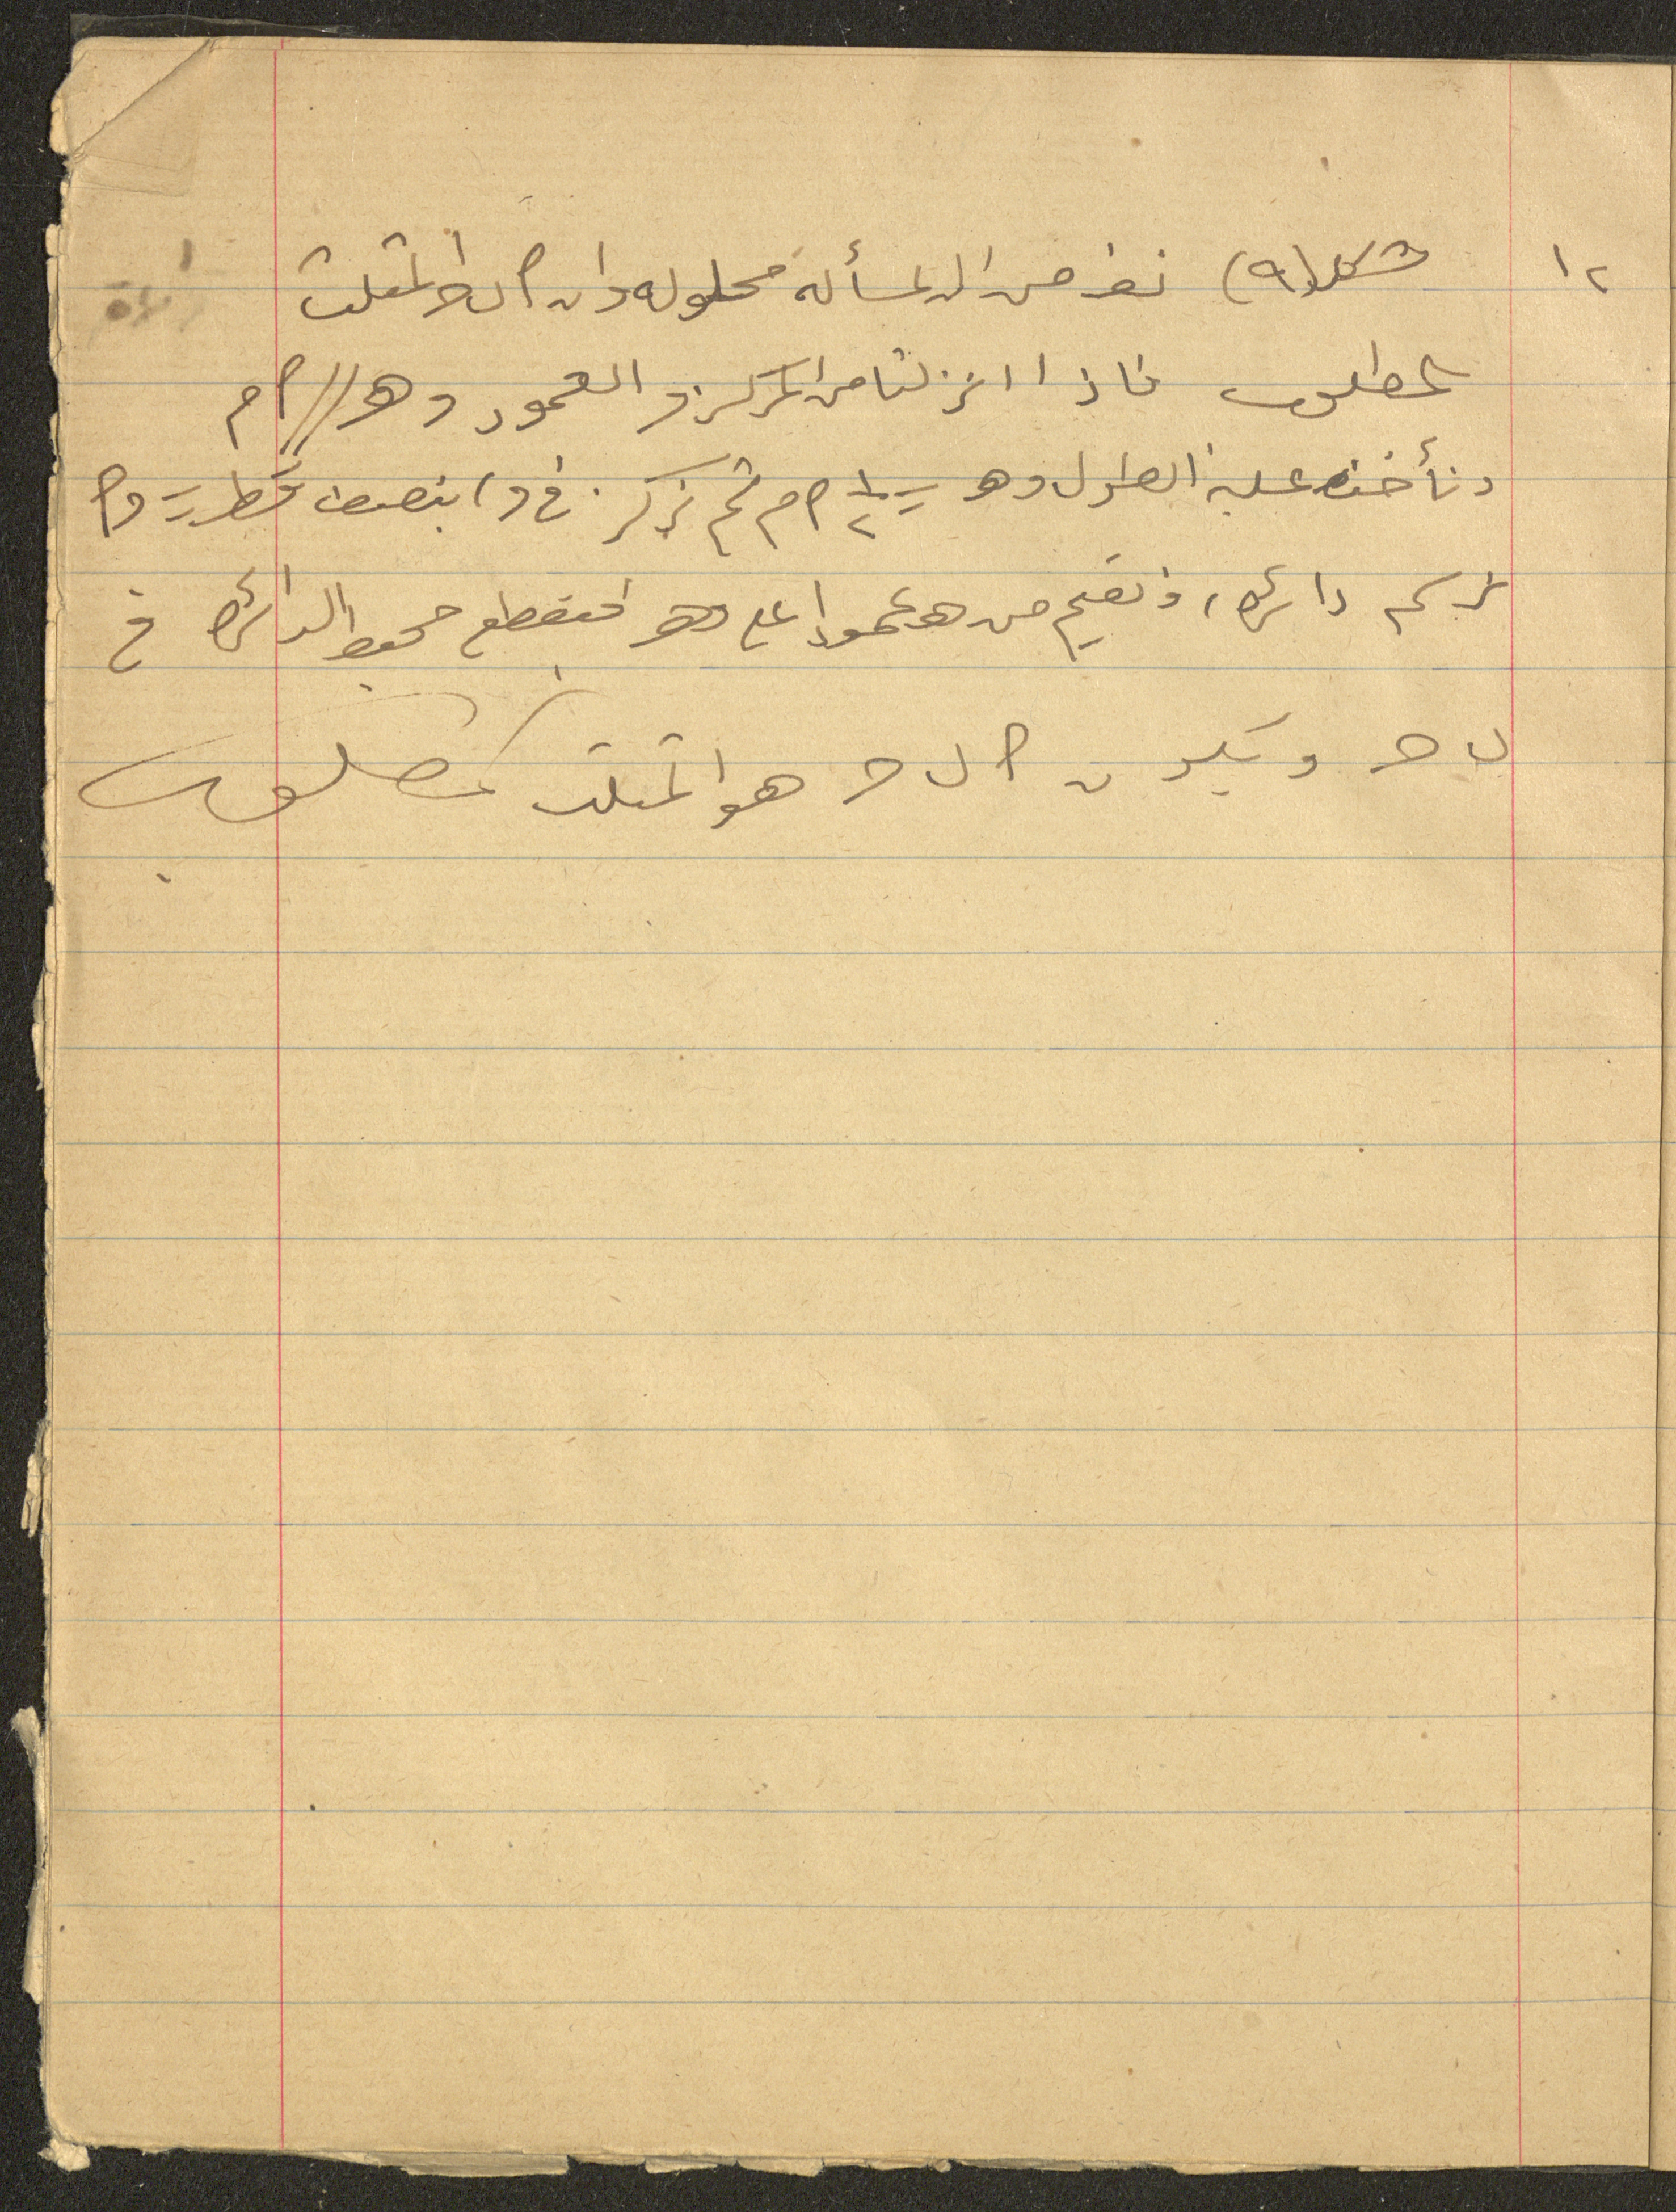 ١٢ شكل (٩) نفرض ان المسألة محلولة وان ا ب ح المثلث
المطلوب فاذا انزلنا من المركز و العمود و هـ // ا م
ونأخذ عليه الطول و هـ = ١/٢ ا م ثم نركز في و) بنصف قطر = و ا
نرسم دائرة، ونقيم من هـ عمودا على و هـ فيقطع محيط الدائرة في
ب ح ويكون ا ب ح هو المثلث المطلوب